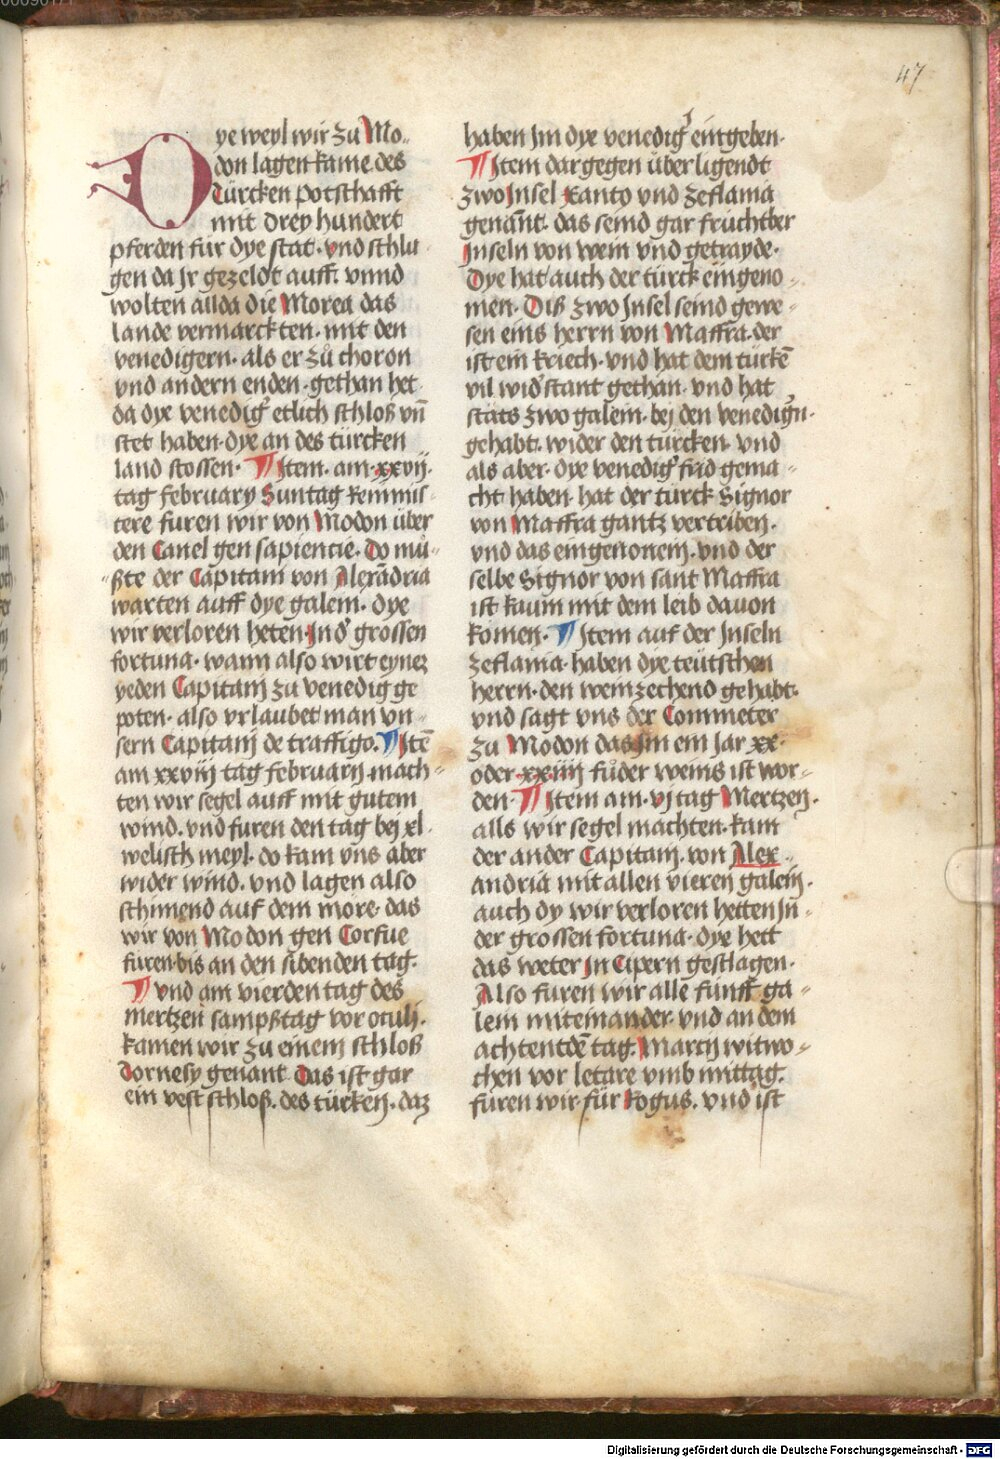 47
Dye weyl wir zu Mo-
don lagen kame des
Türcken potschafft
mit drey hundert
pferden für dye stat. vnd schlu
gen da Jr gezeldt auff. vnnd
wolten allda die Morea das
lande vermarckten. mit den
venedigern. als er zů choron
vnd andern enden. gethan het
da dye venedig̉ etlich schloß vn̄
stet haben. dye an des türcken
land stossen. ¶ Jtem. am. xxvij.
tag february Suntag Reminis-
tere furen wir von Modon über
den Canel gen sapiencie. Do mů-
ßte der Capitani von Alexādria
warten auff dye galein. dye
wir verloren heten. Jn d̉ grossen
fortuna. wann also wirt eynez
yeden Capitanj zu venedig ge
poten. also vrlaubet man vn-
sern Capitanj de traffigo. ¶ Jtē
am xxviij tag februarij. mach-
ten wir segel auff mit gutem
wind. vnd furen den tag bej xl.
welisch meyl. do kam vns aber
wider wind. vnd lagen also
schimend auf dem more. das
wir von Modon gen Corfue
furen. bis an den sibenden tag.
¶ vnd am vierden tag des
mertzen sampßtag vor oculj.
kamen wir zu einem schloß
Dornesy genant. Das ist gar
ein vest schloß. des türken. daz
haben Jm dye venedig̉ eingeben.
¶ Jtem dargegen über ligendt
zwo Jnsel Xanto vnd Zeflania
genant. das seind gar fruchtber
Jnseln von wein vnd getrayde.
Dye hat auch der türck eingeno-
men. Diß zwo Jnsel seind gewe-
sen eins herrn von Maffra. der
ist ein kriech. vnd hat dem türkē
vil wid̉stant gethan. vnd hat
stäts zwo galein. bej den venedig̉n.
gehabt. wider den türcken. vnd
als aber. dye venedig̉ frid gema-
cht haben. hat der türck Signor
von Maffra gantz vertriben.
vnd das eingenomen. vnd der
selbe Signor von sant Maffra
ist kaum mit dem leib dauon
komen. ¶ Jtem auf der Jnseln
Zeflania. haben dye teütschen
herrn. den weinzechend gehabt.
vnd sagt vns der Commeter
zu Modon das Jm ein Jar xx.
oder. xxiiij fůder weins ist wor-
den. ¶ Jtem am. vj tag Mertzen.
alls wir segel machten. kam
der ander Capitanj. von Alex-
andria mit allen vieren galein.
auch dy wir verloren hetten Jn-
der grossen fortuna. dye hett
das weter Jn Cipern geslagen.
Also furen wir alle fünff ga-
lein miteinander. vnd an dem
achtentdē tag. Marcij witwo-
chen vor letare vmb mittag.
furen wir für Kogus. vnd ist
Digitalisierung gefördert durch die Deutsche Forschungsgemeinschaft - DFG